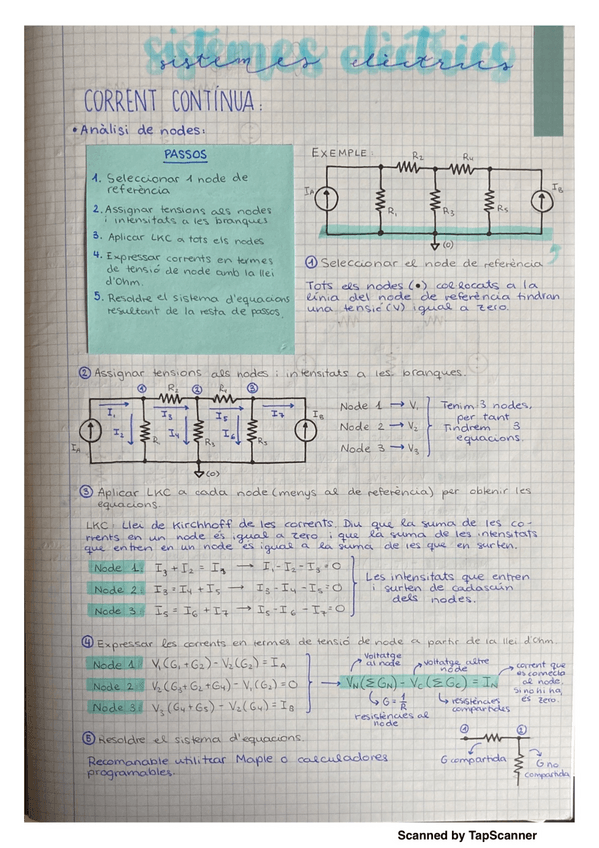 sistemes elèctrics
CORRENT CONTÍNUA:
• Anàlisi de nodes:
PASSOS
1. Seleccionar 1 node de
referència
2. Assignar tensions als nodes
i intensitats a les branques
3. Aplicar LKC a tots els nodes
4. Expressar corrents en termes
de tensió de node amb la llei
d'Ohm.
5. Resoldre el sistema d'equacions
resultant de la resta de passos.
EXEMPLE:
R₂ R₄
I_A R₁ R₃ R₅ I_B
(0)
① Seleccionar el node de referència
Tots els nodes (•) col·locats a la
línia del node de referència tindran
una tensió (V) igual a zero.
② Assignar tensions als nodes i intensitats a les branques.
① R₂ ② R₄ ③
I₁ I₃ I₅ I₇
I_A I₂ R₁ I₄ R₃ I₆ R₅ I_B
(0)
Node 1 → V₁
Node 2 → V₂
Node 3 → V₃
Tenim 3 nodes,
per tant
Tindrem 3
equacions.
③ Aplicar LKC a cada node (menys al de referència) per obtenir les
equacions.
LKC: Llei de Kirchhoff de les corrents. Diu que la suma de les co-
rrents en un node és igual a zero i que la suma de les intensitats
que entren en un node és igual a la suma de les que en surten.
Node 1: I₃ + I₂ = I₁ → I₁ - I₂ - I₃ = 0
Node 2: I₃ = I₄ + I₅ → I₃ - I₄ - I₅ = 0
Node 3: I₅ = I₆ + I₇ → I₅ - I₆ - I₇ = 0
Les intensitats que entren
i surten de cadascún
dels nodes.
④ Expressar les corrents en termes de tensió de node a partir de la llei d'Ohm.
Node 1: V₁(G₁+G₂) - V₂(G₂) = I_A
Node 2: V₂(G₃+G₂+G₄) - V₁(G₂) = 0
Node 3: V₃(G₄+G₅) - V₂(G₄) = I_B
Voltatge
al node
Voltatge altre
node
corrent que
es connecta
al node,
Si no hi ha,
és zero.
→ V_N(ΣG_N) - V_C(ΣG_C) = I_N
G = 1/R
resistències al
node
resistències
compartides
⑤ Resoldre el sistema d'equacions.
Recomanable utilitzar Maple o calculadores
programables.
① ②
G compartida
G no
compartida
Scanned by TapScanner